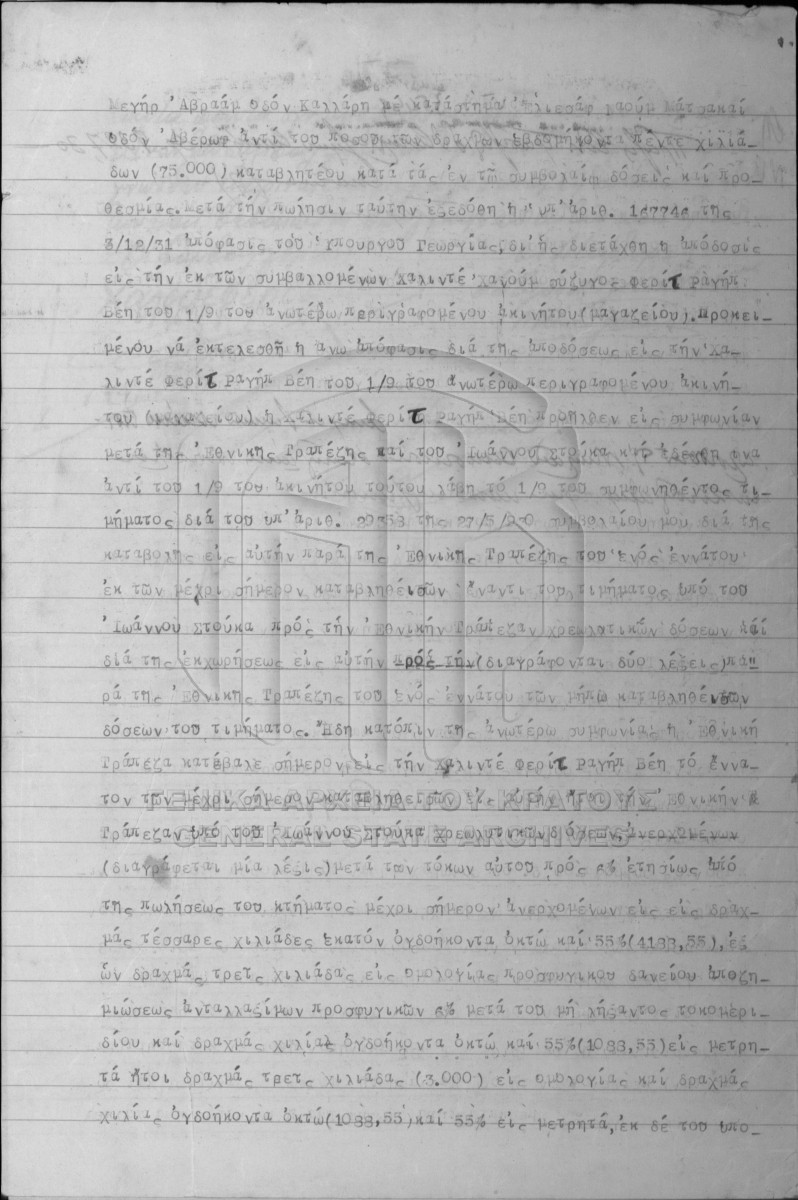 Μεγήρ Ἀβραάμ ὁδόν Καλλάρη μέ κατάστημα Ἐλιεσάφ Ναούμ Μάτσα καί
ὁδόν Ἀβέρωφ ἀντί του ποσου των δραχμων ἑβδομήκοντα πέντε χιλιά-
δων (75.000) καταβλητέου κατά τάς ἐν τῶ συμβολαίῳ δόσεις καί προ-
θεσμίας. Μετά τήν πώλησιν ταύτην ἐξεδόθη ἡ ὑπ' ἀριθ. 167746 της
8/12/31 ἀπόφασις του Ὑπουργου Γεωργίας, δι' ἧς διετάχθη ἡ ἀπόδοσις
εἰς τήν ἐκ των συμβαλλομένων Χαλιντέ Χανούμ σύζυγος Φερίτ Ραγήπ
Βέη του 1/9 του ἀνωτέρω περιγραφομένου ἀκινήτου (μαγαζείου). Προκει-
μένου νά ἐκτελεσθῆ ἡ ανω ἀπόφασις διά της ἀποδόσεως εἰς τήν Χα-
λιντέ Φερίτ Ραγήπ Βέη του 1/9 του ἀνωτέρω περιγραφομένου ἀκινή-
του (μαγαζείου) ἡ Χαλιντέ Φερίτ Ραγήπ Βέη προηλθεν εἰς συμφωνίαν
μετά της Ἐθνικης Τραπέζης καί του Ἰωάννου Στούκα ἵνα
ἀντί του 1/9 του ἀκινήτου τούτου λάβη τό 1/9 του συμφωνηθέντος τι-
μήματος διά του υπ' ἀριθ. της 27/5/ συμβολαίου μου διά της
καταβολης εἰς αὐτήν παρά της Ἐθνικης Τραπέζης του ἑνός ἐννάτου
ἐκ των μέχρι σήμερον καταβληθέισῶν ἔναντι του τιμήματος ὑπό του
Ἰωάννου Στούκα πρός τήν Ἐθνικήν Τράπεζαν χρεολυτικῶν δόσεων καί
διά της ἐκχωρήσεως εἰς αὐτήν πρός τήν (διαγράφονται δύο λέξεις) πα"
ρά της Ἐθνικης Τραπέζης του ἑνός ἐννάτου των μήπω καταβληθέντων
δόσεων του τιμήματος. Ἤδη κατόπιν της ἀνωτέρω συμφωνίας ἡ Ἐθνική
Τράπεζα κατέβαλε σήμερον εἰς τήν Χαλιντέ Φερίτ Ραγήπ Βέη τό ἔννα-
τον των μέχρι σήμερον καταβληθεισων εἰς αὐτήν ἤτοι τήν Ἐθνικήν
ΓΕΝΙΚΑ ΑΡΧΕΙΑ ΤΟΥ ΚΡΑΤΟΥΣ
Τράπεζαν ὑπό του Ἰωάννου Στούκα χρεωλυτικων δόσεων ἀνερχομένων
GENERAL STATE ARCHIVES
(διαγράφεται μία λέξις) μετά των τόκων αὐτου πρός 6% ἐτησίως ἀπό
της πωλήσεως του κτήματος μέχρι σήμερον ἀνερχομένων εἰς εἰς δραχ-
μάς τέσσαρες χιλιάδες ἑκατόν ὀγδοήκοντα ὀκτώ καί 55%(4188,55), ἐξ
ὧν δραχμάς τρεῖς χιλιάδας εἰς ομολογίας προσφυγικου δανείου ἀποζη-
μιώσεως ἀνταλλαξίμων προσφυγικῶν 6% μετά του μή λήξαντος τοκομερι-
δίου καί δραχμάς χιλίας ὀγδοήκοντα ὀκτώ καί 55%(1088,55) εἰς μετρη-
τά ἤτοι δραχμάς τρεῖς χιλιάδας (3.000) εἰς ομολογίας καί δραχμάς
χιλίας ὀγδοήκοντα ὀκτώ(1088,55) καί 55% εἰς μετρητά, ἐκ δέ του υπο-